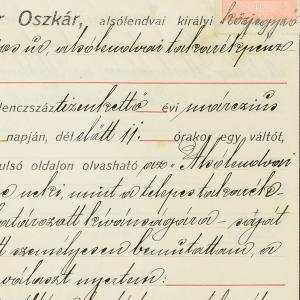 r Oszkár, alsólendvai királyi közjegyző
os úr, alsólendvai takarékpénz
lenczszáz tizenkettő évi márczius
napján, dél előtt 11: órakor egy váltót,
ulsó oldalon olvasható az "Alsólendvai
neki, mint a telepes takarék-
határozott kívánságára - saját
tt személyesen bemutattam, a
választ nyertem: